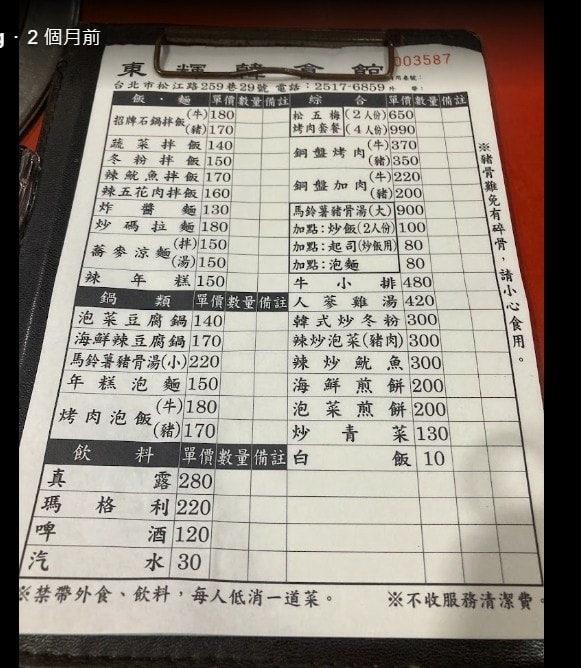 g · 2 個月前
東輝韓食館
003587
台北市松江路259巷29號 電話：2517-6859
飯、麵 單價 數量 備註
招牌石鍋拌飯 (牛) 180
(豬) 170
蔬菜拌飯 140
冬粉拌飯 150
辣魷魚拌飯 170
辣五花肉拌飯 160
炸醬麵 130
炒碼拉麵 180
蕎麥涼麵 (拌) 150
(湯) 150
辣年糕 150
鍋類 單價 數量 備註
泡菜豆腐鍋 140
海鮮辣豆腐鍋 170
馬鈴薯豬骨湯(小) 220
年糕泡麵 150
烤肉泡飯 (牛) 180
(豬) 170
飲料 單價 數量 備註
真露 280
瑪格利 220
啤酒 120
汽水 30
綜合 單價 數量 備註
松五梅 (2人份) 650
烤肉套餐 (4人份) 990
銅盤烤肉 (牛) 370
(豬) 350
銅盤加肉 (牛) 220
(豬) 200
馬鈴薯豬骨湯(大) 900
加點：炒飯(2人份) 100
加點：起司(炒飯用) 80
加點：泡麵 80
牛小排 480
人蔘雞湯 420
韓式炒冬粉 300
辣炒泡菜(豬肉) 300
辣炒魷魚 300
海鮮煎餅 200
泡菜煎餅 200
炒青菜 130
白飯 10
※豬骨難免有碎骨，請小心食用。
※禁帶外食、飲料，每人低消一道菜。 ※不收服務清潔費。